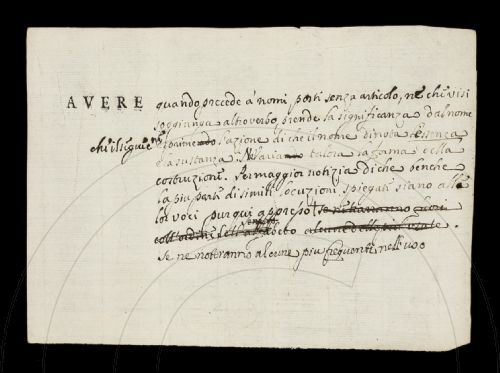 AVERE quando precede a' nomi posti senza articolo, ne che vi si
soggiunga altro verbo, prende la significanza dal nome
che il segue
l'azione di che il nome dinota l'essenza
o la sustanza. talora la forma della
costruzione. Per maggior notizia di che benche
la piu parte di simili locuzioni spiegati siano alle
lor voci pur qui appresso se ne
coll'ordine dell'alfabeto alcune delle piu
se ne noteranno alcune piu frequenti nell'uso